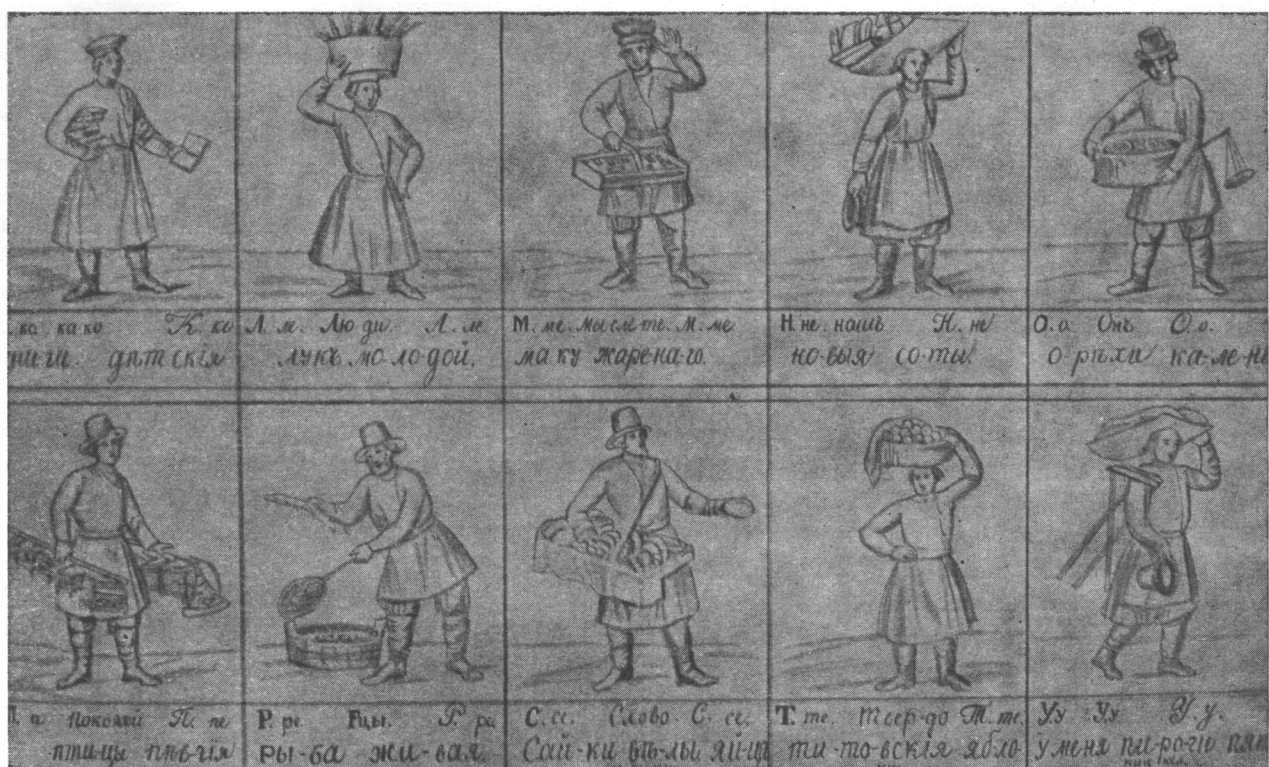 ка. како К. ке
ниги. дѣтскія
Л. ле. Люди. Л. ле
лукъ. мо-ло-дой.
М. ме. мыслете. М. ме
маку жарена-го.
Н. не. нашъ Н. не
но-выя со-ты.
О. о. Онъ О. о.
о-рѣхи ка-ле-н
П. п покой П. пе
птицы пѣвчія
Р. ре Рцы. Р. ре
ры-ба жи-вая.
С. се. Слово. С. се.
Сай-ки бѣ-лы яйц
Т. те, твер-до Т. те.
ти-то-вскія ябло
У. у У. у У. у.
у меня пи-ро-ги